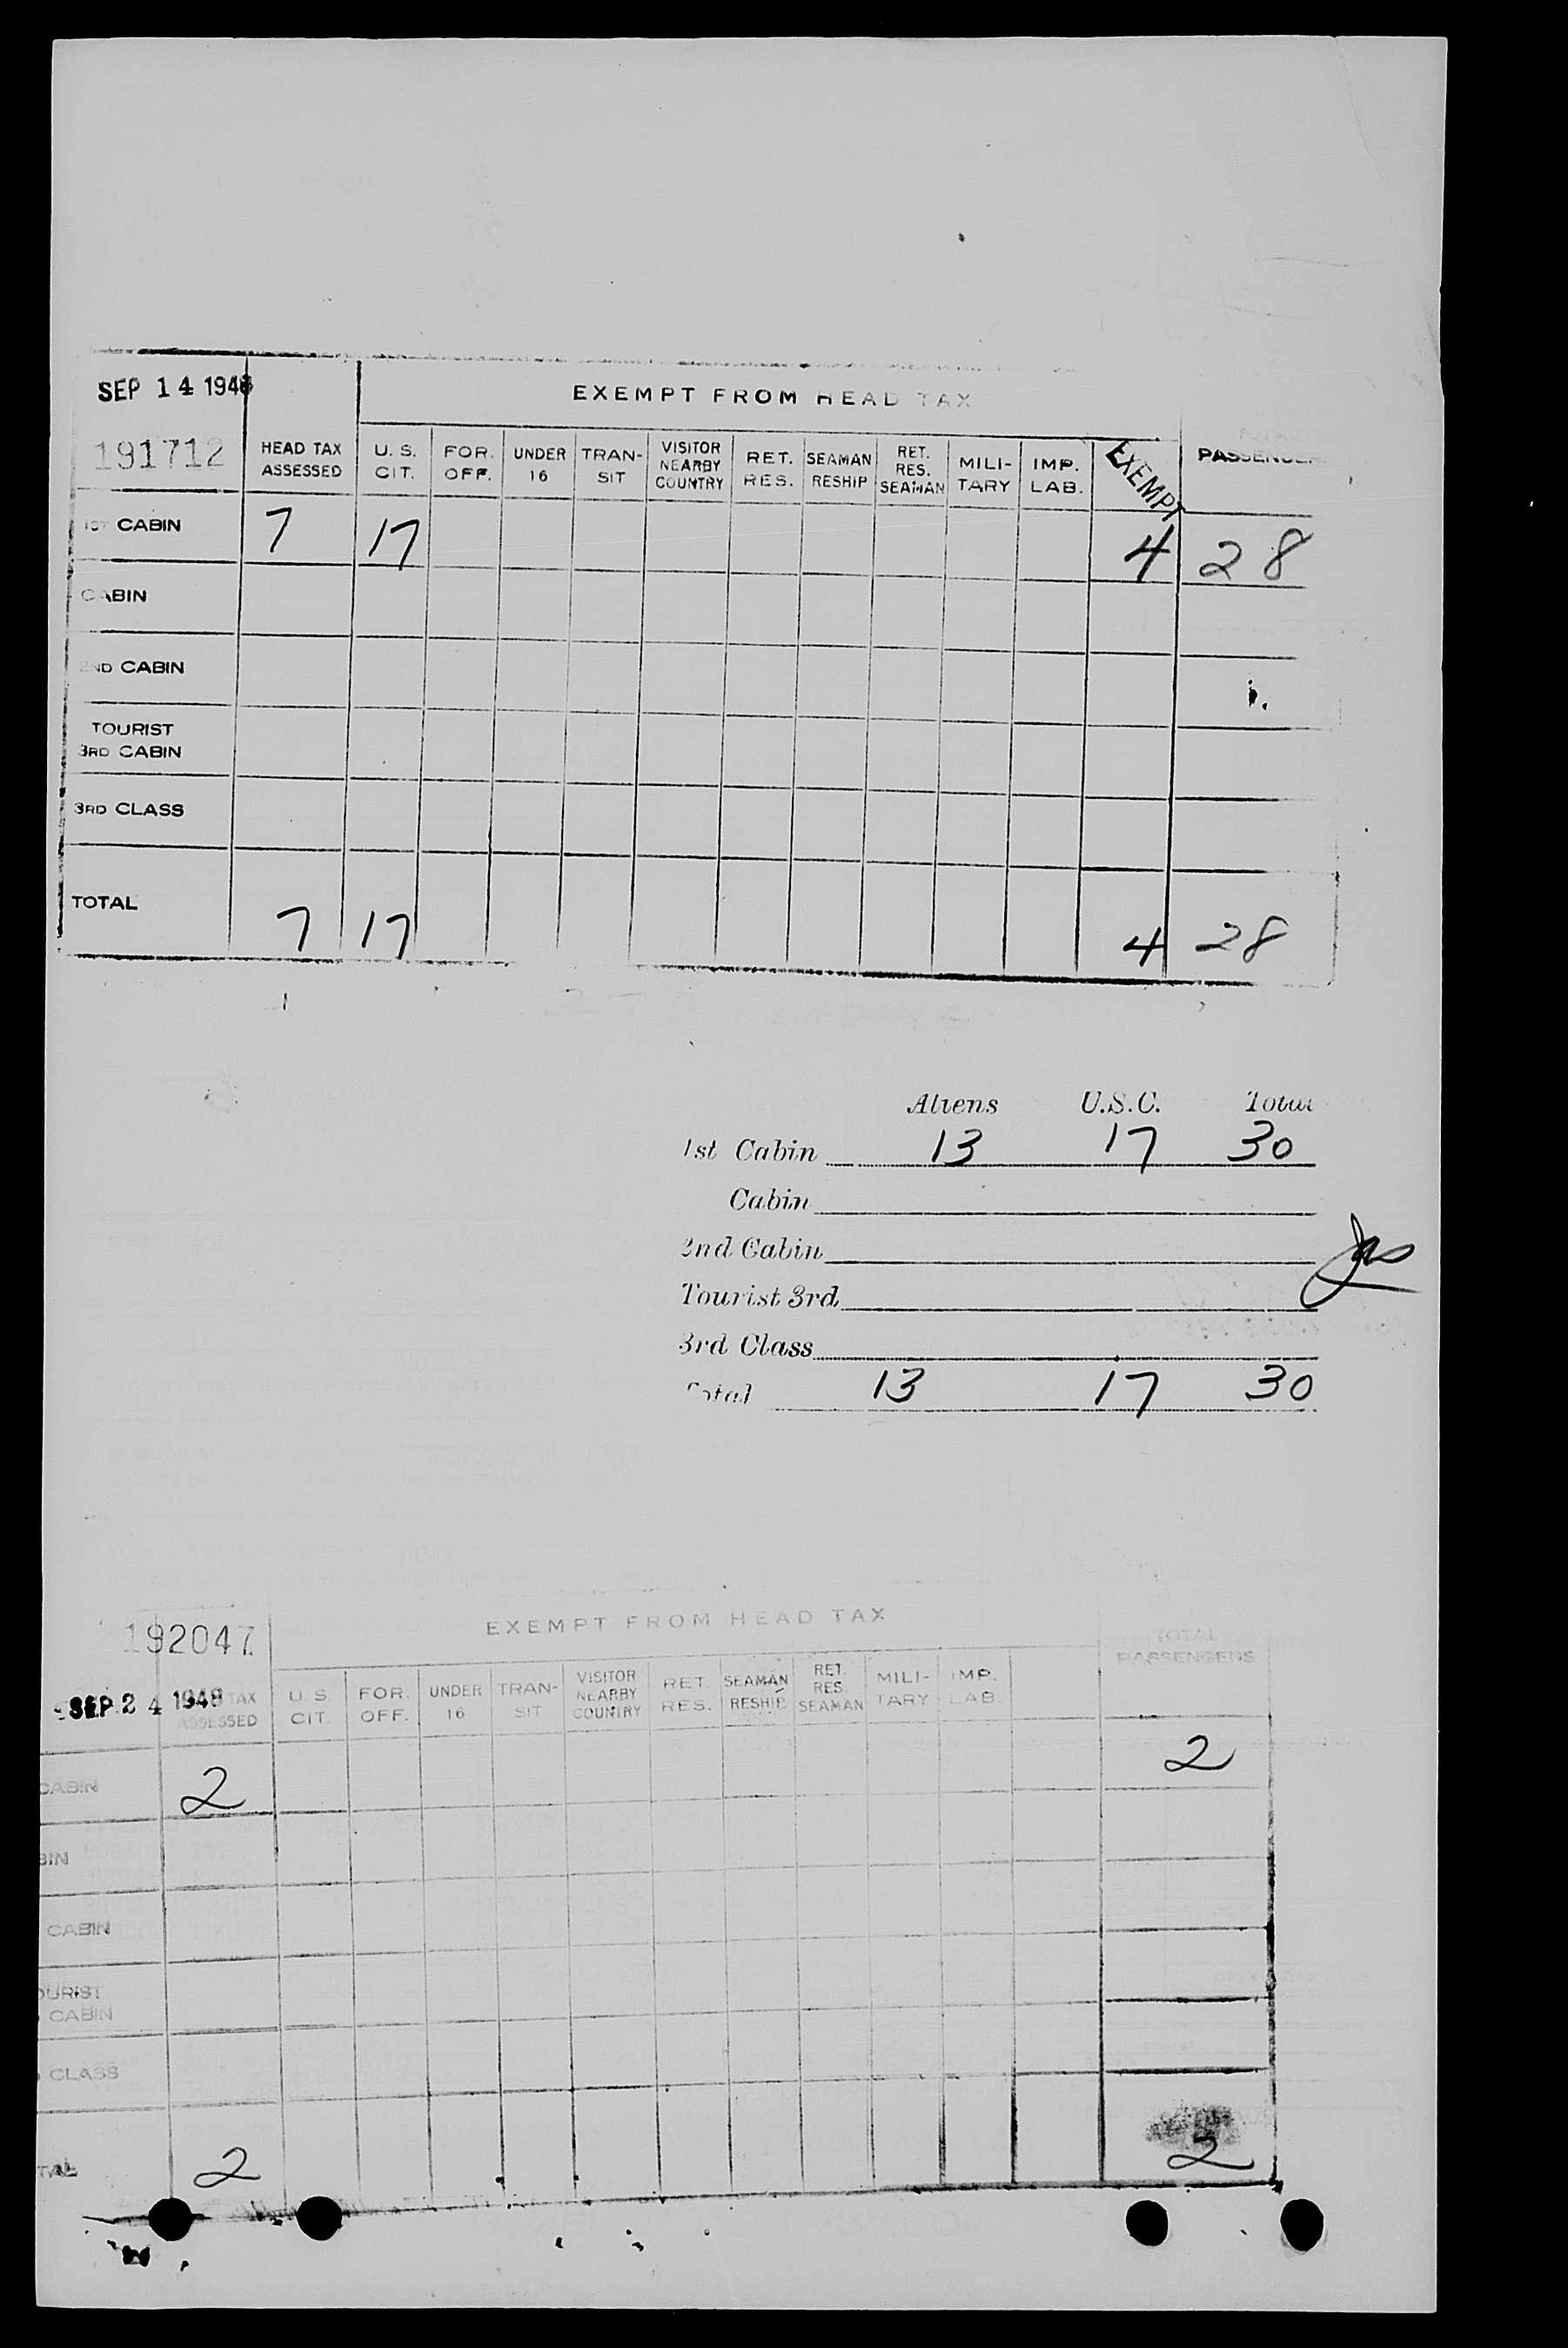 SEP 14 1948
EXEMPT FROM HEAD TAX
191712 HEAD TAX ASSESSED U. S. CIT. FOR. OFF. UNDER 16 TRAN- SIT VISITOR NEARBY COUNTRY RET. RES. SEAMAN RESHIP RET. RES. SEAMAN MILI- TARY IMP. LAB. EXEMPT TOTAL PASSENGERS
1ST CABIN 7 17 4 28
CABIN
2ND CABIN
TOURIST
3RD CABIN
3RD CLASS
TOTAL 7 17 4 28
Aliens U.S.C. Total
1st Cabin 13 17 30
Cabin
2nd Cabin
Tourist 3rd
3rd Class
Total 13 17 30
192047
EXEMPT FROM HEAD TAX
SEP 24 1948 TAX ASSESSED U. S. CIT. FOR. OFF. UNDER 16 TRAN- SIT VISITOR NEARBY COUNTRY RET. RES. SEAMAN RESHIP RET. RES. SEAMAN MILI- TARY IMP. LAB. TOTAL PASSENGERS
CABIN 2 2
BIN
CABIN
OURIST
CABIN
CLASS
TAL 2 2